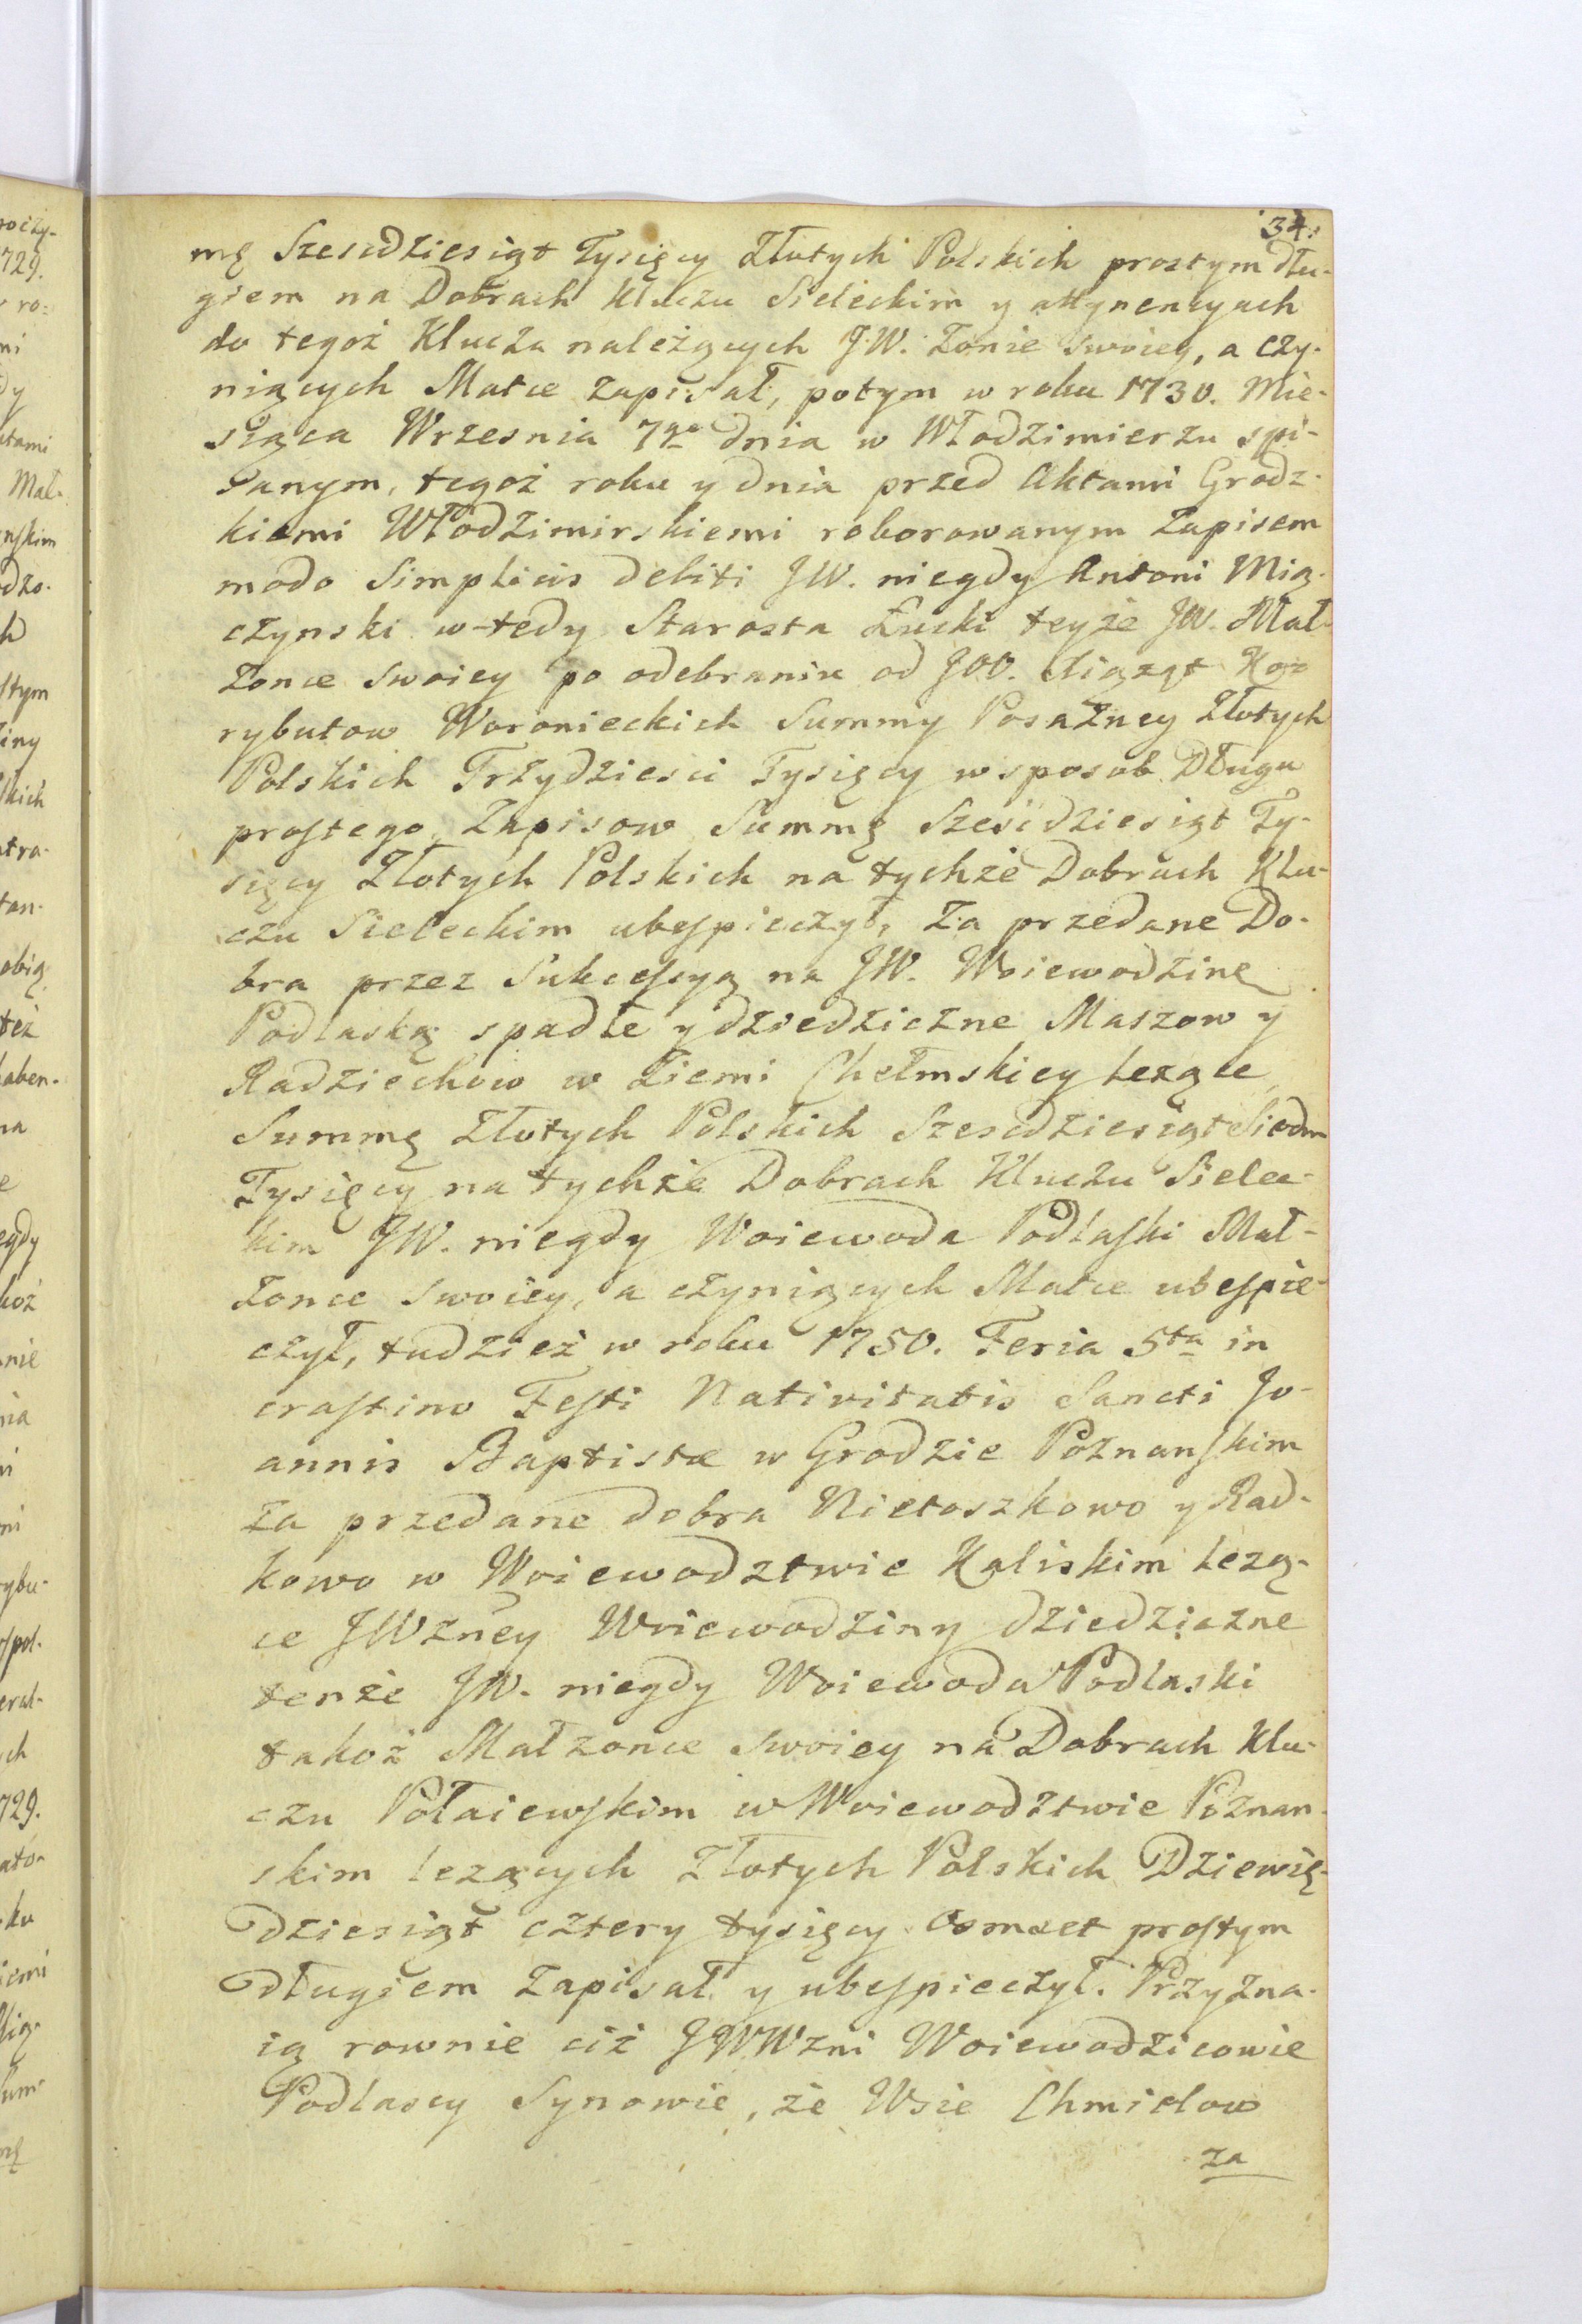 34.
mę Szescdziesiąt Tysięcy Złotych Polskich prostym dłu-
giem na Dobrach Kluczu Sieleckim y attynencyach
do tegoż Klucza należących J.W. Zonie swoiey, a czy-
niących Matce zapisał, potym w roku 1730. Mie-
siąca Wrzesnia 7go dnia w Włodzimierzu spi-
sanym, tegoż roku y dnia przed Aktami Grodz-
kiemi Włodzimirskiemi roborowanym Zapisem
modo Simplicis debiti JW. niegdy Antoni Mią-
czynski w-tedy Starosta Łucki teyże JW. Mał-
żonce swoiey po odebraniu od JOO. Xiąząt Ko-
rybutow Woronieckich Summy Posażney Złotych
Polskich Trzydziesci Tysięcy wsposob Długu
prostego Zapisow Summę Szescdziesiąt Ty-
sięcy Złotych Polskich na tychże Dobrach Klu-
czu Sieleckim ubespieczył, Za przedane Do-
bra przez Sukcessyą na JW. Woiewodzinę
Podlaską spadłe y dziedziczne Maszow y
Radziechow w Ziemi Chełmskiey leżące
Summę Złotych Polskich Szescdziesiąt Siedm
Tysięcy na tychże Dobrach Kluczu Sielec-
kim JW. niegdy Woiewoda Podlaski Mał-
żonce swoiey, a czyniących Matce ubespie-
czył, tudzież w roku 1750. Feria 5ta in
crastino Festi Nativitatis Sancti Jo-
annis Baptistæ w Grodzie Poznanskim
za przedane dobra Nietoszkowo y Rad-
kowo w Woiewodztwie Kaliskim leżą-
ce JWzney Woiewodziny dziedziczne
tenże JW. niegdy Woiewoda Podlaski
takoż Małżonce swoiey na Dobrach Klu-
czu Połaiewskim w Woiewodztwie Poznan-
skim leżących Złotych Polskich Dziewię-
dziesiąt cztery tysięcy osmset prostym
długiem Zapisał y ubespieczył. Przyzna-
ią rownie ciż JWWzni Woiewodzicowie
Podlascy Synowie, że Wsie Chmielow
za